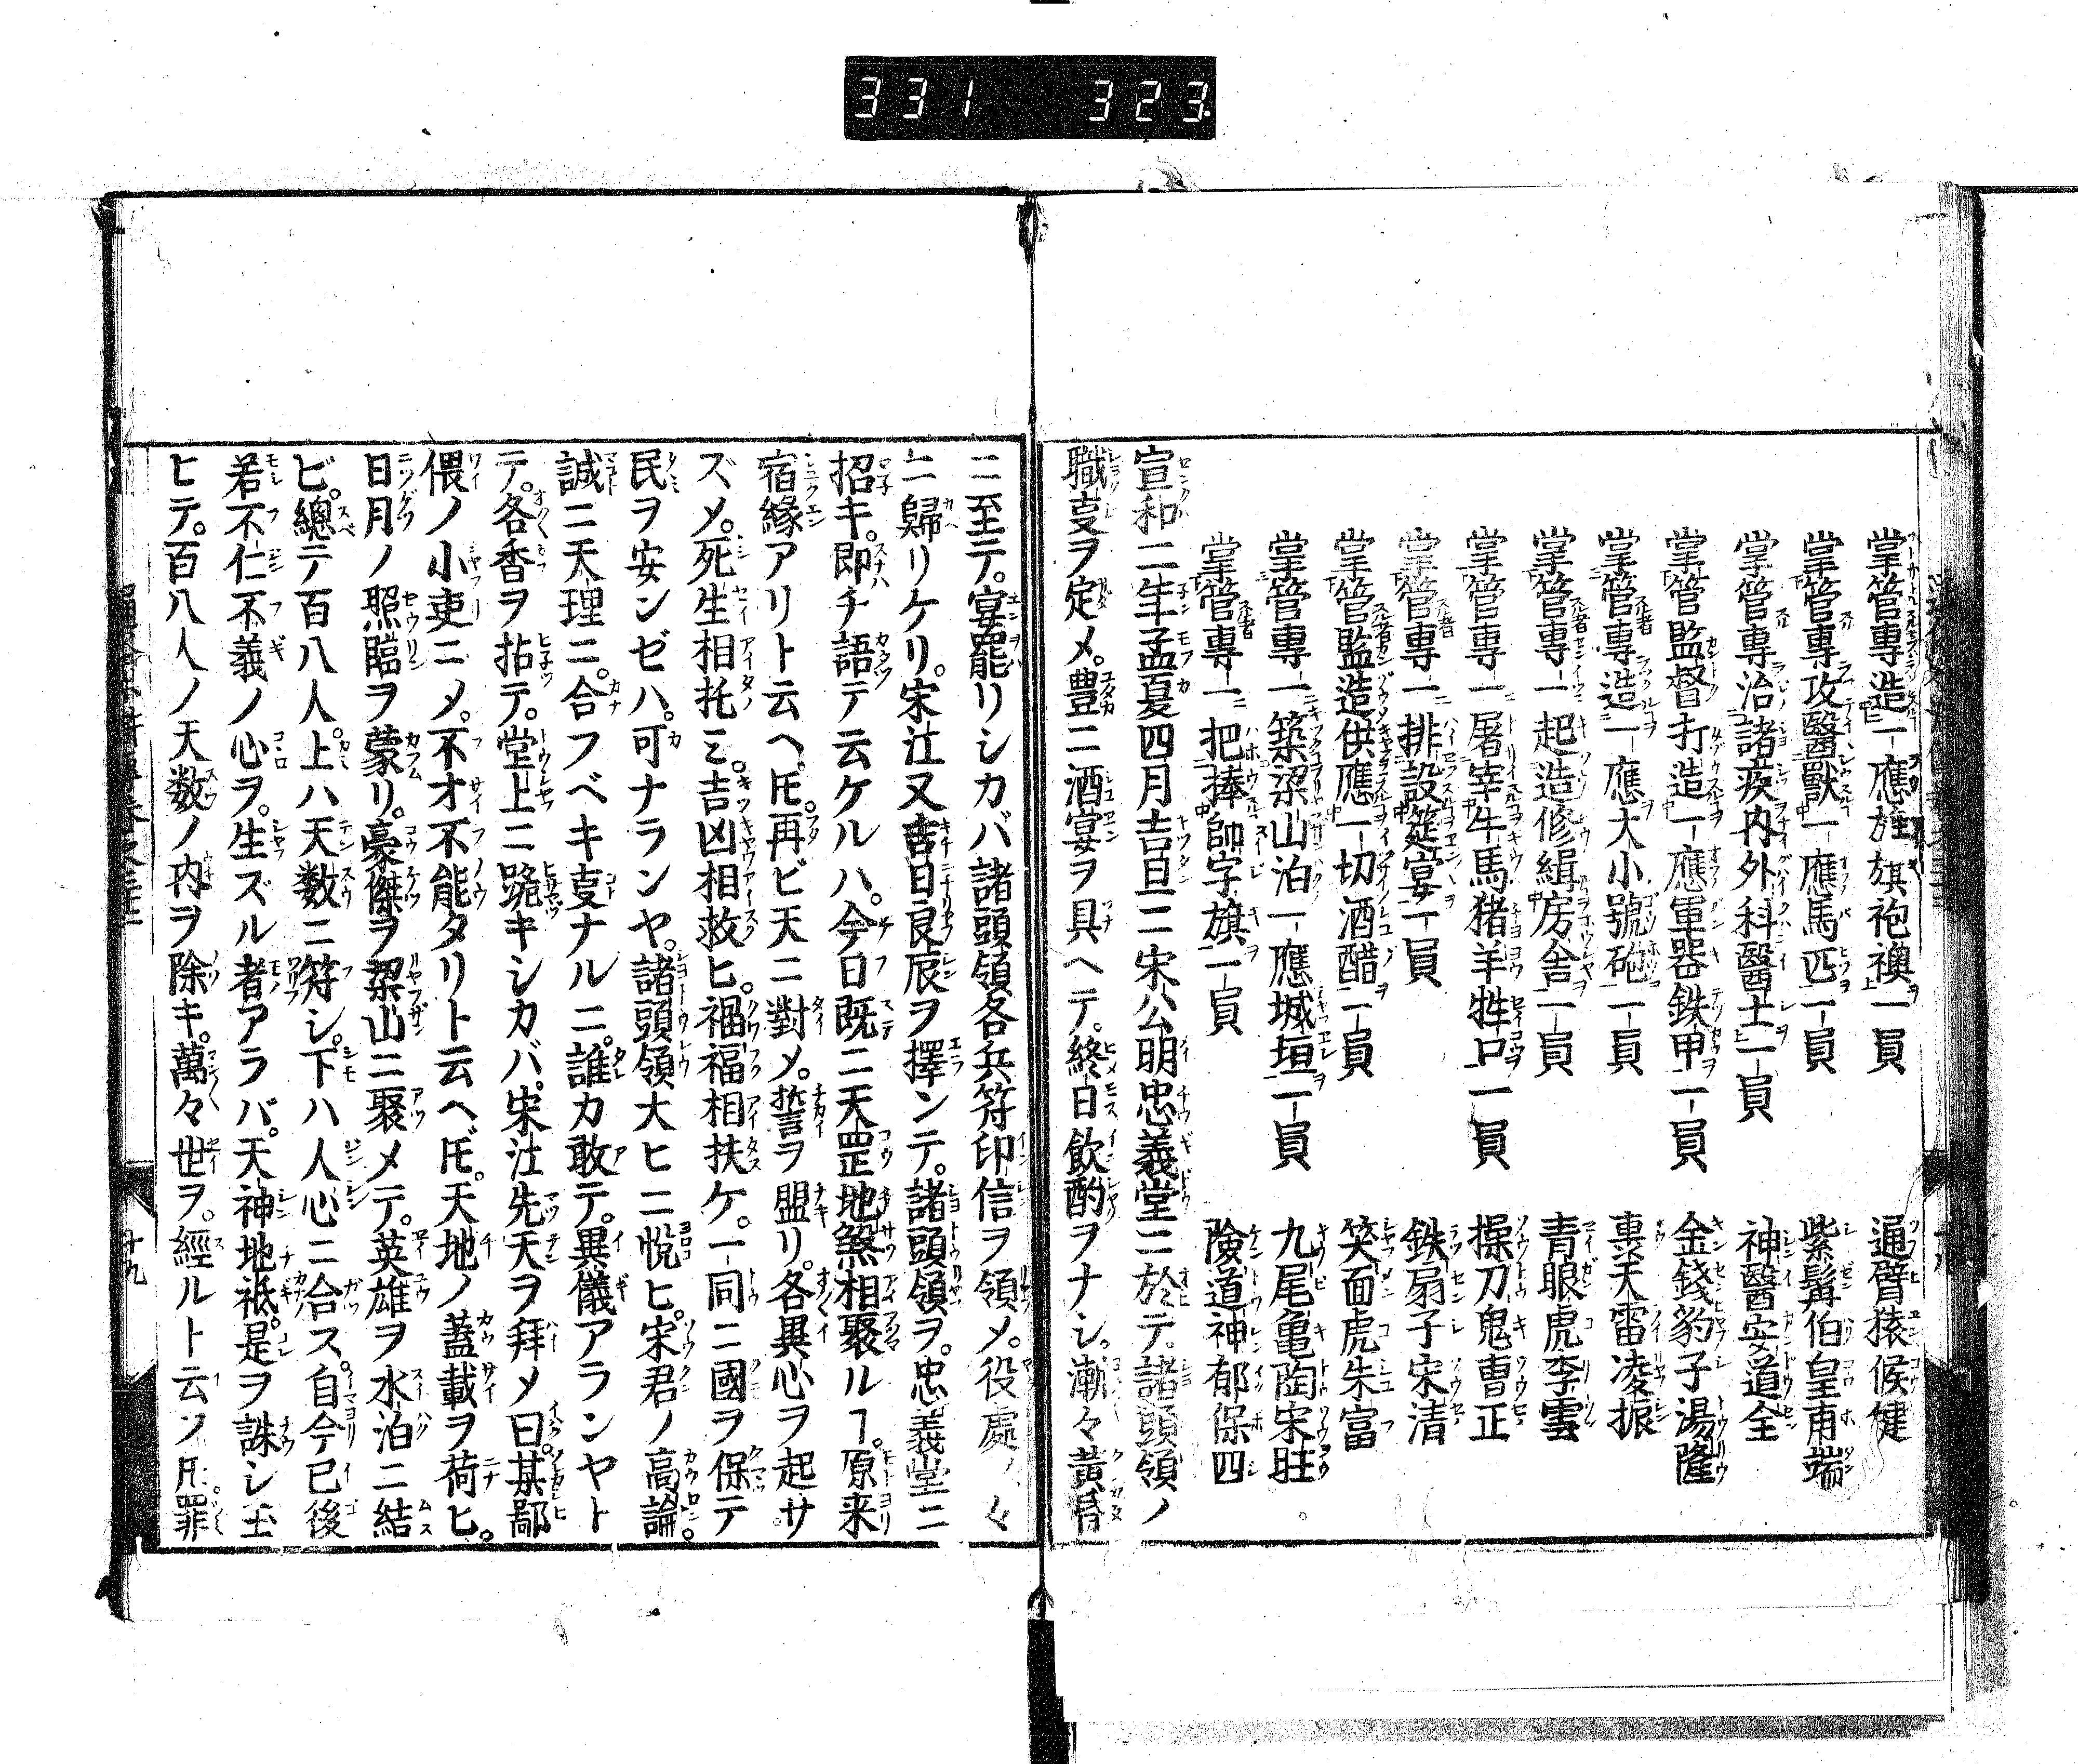 331 323
掌管專造一應旌旗袍襖一員 通臂猿候健
掌管專攻醫獸一應馬匹一員 紫髯伯皇甫端
掌管專治諸疾内外科醫士一員 神醫安道全
掌管監督打造一應軍器鉄甲一員 金錢豹子湯隆
掌管專造一應大小號砲一員 轟天雷凌振
掌管專一起造修緝房舎一員 青眼虎李雲
掌管專一屠宰牛馬猪羊牲口一員 操刀鬼曹正
掌管專一排設筵宴一員 鉄扇子宋清
掌管監造供應一切酒醋一員 笑面虎朱富
掌管專一築梁山泊一應城垣一員 九尾亀陶宋旺
掌管專一把捧帥字旗一員 險道神郁保四
宣和二年孟夏四月吉旦ニ宋公明忠義堂ニ於テ諸頭領ノ
職叓ヲ定メ。豊ニ酒宴ヲ具ヘテ。終日飲酌ヲナシ。漸々黄昏
ニ至テ。宴罷リシカバ諸頭領各兵符印信ヲ領メ。役處ノ々
ニ歸リケリ。宋江又吉日良辰ヲ擇ンテ。諸頭領ヲ。忠義堂ニ
招キ。即チ語テ云ケルハ。今日既ニ天罡地煞相聚ルヿ。原来
宿緣アリト云ヘ𪜈。再ビ天ニ對メ。誓ヲ盟リ。各異心ヲ起サ
ズメ。死生相托ミ。吉凶相救ヒ。禍福相扶ケ。一同ニ國ヲ保テ
民ヲ安ンゼハ。可ナランヤ。諸頭領大ヒニ悅ヒ。宋君ノ高論。
誠ニ天理ニ。合フベキ叓ナルニ。誰カ敢テ。異儀アランヤト
テ。各香ヲ拈テ。堂上ニ跪キシカバ。宋江先天ヲ拜メ曰。某鄙
偎ノ小吏ニメ。不才不能タリト云ヘ𪜈。天地ノ蓋載ヲ荷ヒ。
日月ノ照臨ヲ蒙リ。豪傑ヲ梁山ニ聚メテ。英雄ヲ水泊ニ結
ビ。總テ百八人。上ハ天数ニ符シ。下ハ人心ニ合ス。自今已後
若不仁不義ノ心ヲ。生ズル者アラバ。天神地祗。是ヲ誅シ玉
ヒテ。百八人ノ天数ノ内ヲ除キ。萬々世ヲ。經ルト云ソ𪜈罪
十九